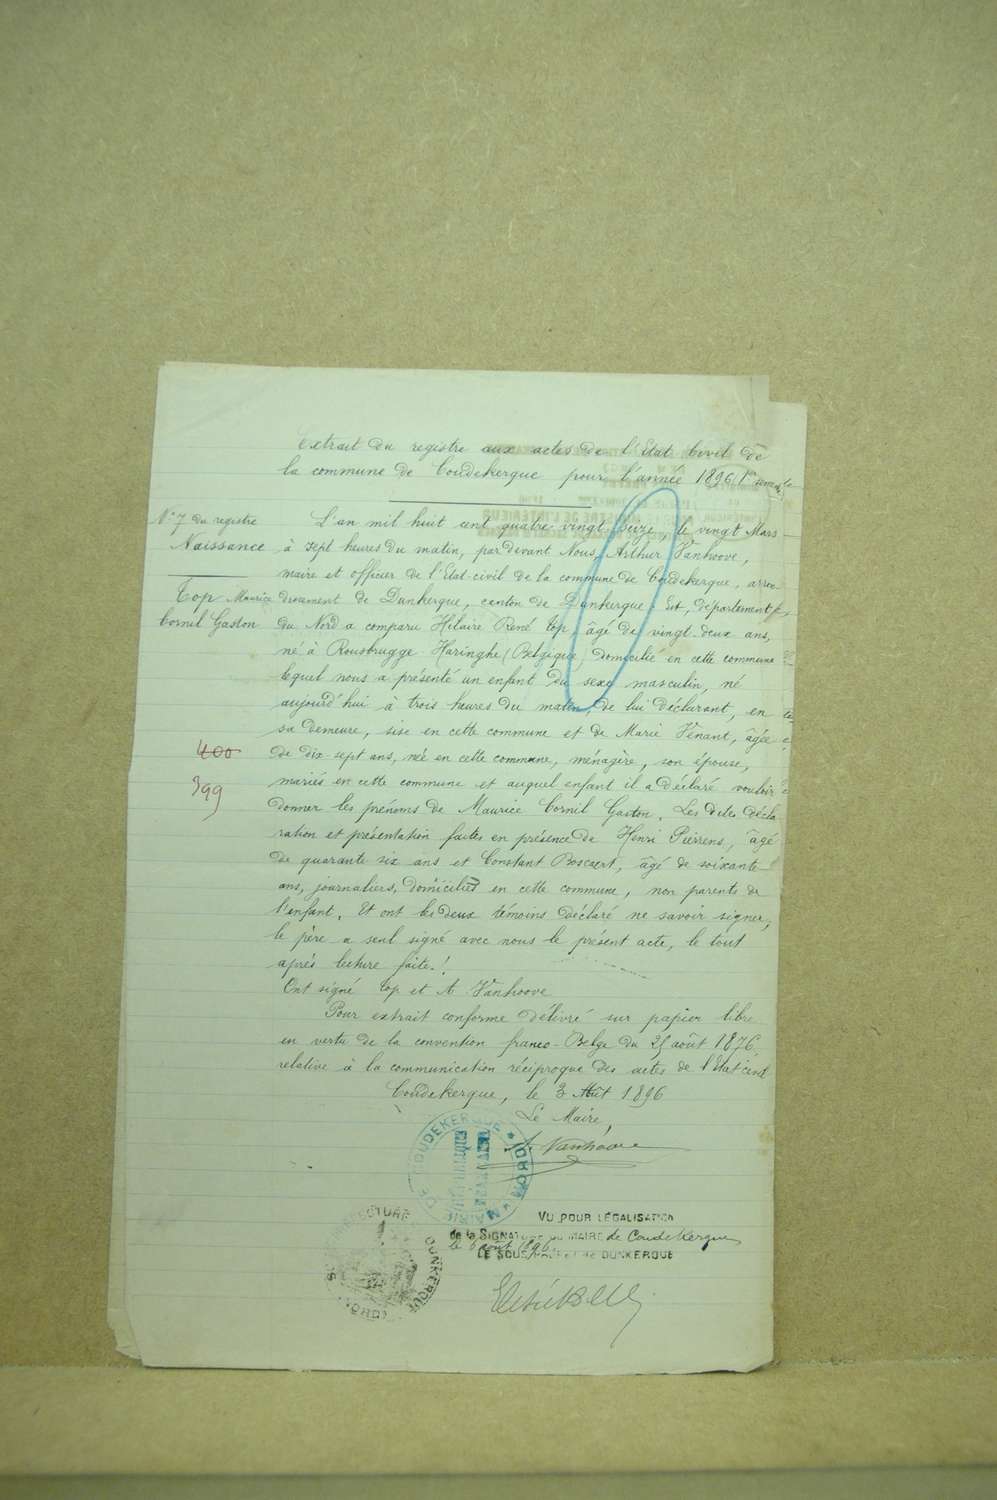 Extrait du registre aux actes de l'Etat Civil de
la commune de Coudekerque pour l'année 1896 1er semestre
N° 7 du registre
Naissance
Top Maurice
Cornil Gaston
400
399
L'an mil huit cent quatre vingt seize, le vingt Mars
à sept heures du matin, pardevant Nous, Arthur Vanhoove,
maire et officier de l'Etat-civil de la commune de Coudekerque, arron-
dissement de Dunkerque, canton de Dunkerque Est, département
du Nord a comparu Hilaire René Top, âgé de vingt-deux ans,
né à Rousbrugge Haringhe (Belgique) domicilié en cette commune
lequel nous a présenté un enfant du sexe masculin, né
aujourd'hui à trois heures du matin, de lui déclarant, en
sa demeure, sise en cette commune et de Marie Vénant, âgée
de dix sept ans, née en cette commune, ménagère, son épouse,
mariés en cette commune et auquel enfant il a déclaré vouloir
donner les prénoms de Maurice Cornil Gaston. Les dites décla
ration et présentation faites en présence de Henri Pierrens, âgé
de quarante six ans et Constant Boscaert, âgé de soixante
ans, journaliers, domiciliés en cette commune, non parents de
l'enfant. Et ont les deux témoins déclaré ne savoir signer,
le père a seul signé avec nous le présent acte, le tout
après lecture faite.!
Ont signé Top et A. Vanhoove
Pour extrait conforme délivré sur papier libre
en vertu de la convention franco-Belge du 25 août 1876
relative à la communication réciproque des actes de l'Etat civil
Coudekerque, le 3 Août 1896
Le Maire,
A. Vanhoove
MAIRIE DE COUDEKERQUE * (NORD) *
SOUS-PRÉFECTURE DUNKERQUE (NORD)
VU POUR LÉGALISATION
de la SIGNATURE DU MAIRE de Coudekerque
le 6 août 1896
LE SOUS-PRÉFET DE DUNKERQUE